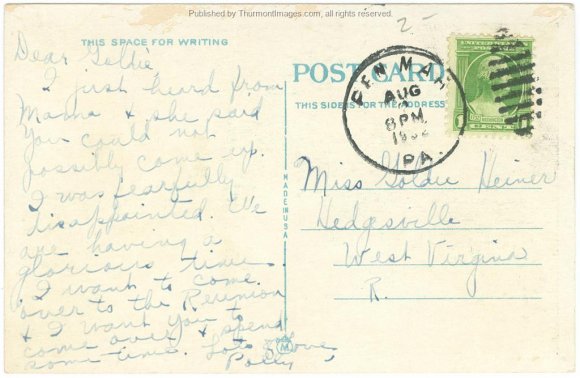 Published by ThurmontImages.com, all rights reserved.
2-
THIS SPACE FOR WRITING
Dear Goldie
I just heard from
Mama & she said
You could not
possibly come up.
I was fearfully
disappointed. We
are having a
glorious time.
I want to come
over to the Reunion
& I want you to
come over & spend
some time. Lots of love
Polly
POST CARD
THIS SIDE IS FOR THE ADDRESS
MADE IN USA
M
PEN MAR
AUG
8 PM
1932
PA.
UNITED STATES POSTAGE
1
Miss Goldie Heiner
Hedgesville
West Virginia
R.